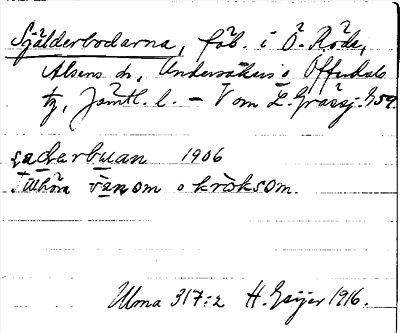 Själderbodarna, fäb. i Ö. Röde,
Alsens sn, Undersåkers o Offerdals
tg, Jämtl. l. – V om L. Gråssj. 859.
1906
vänom o kråksom.
Ulma 317:2 H. Geijer 1916.